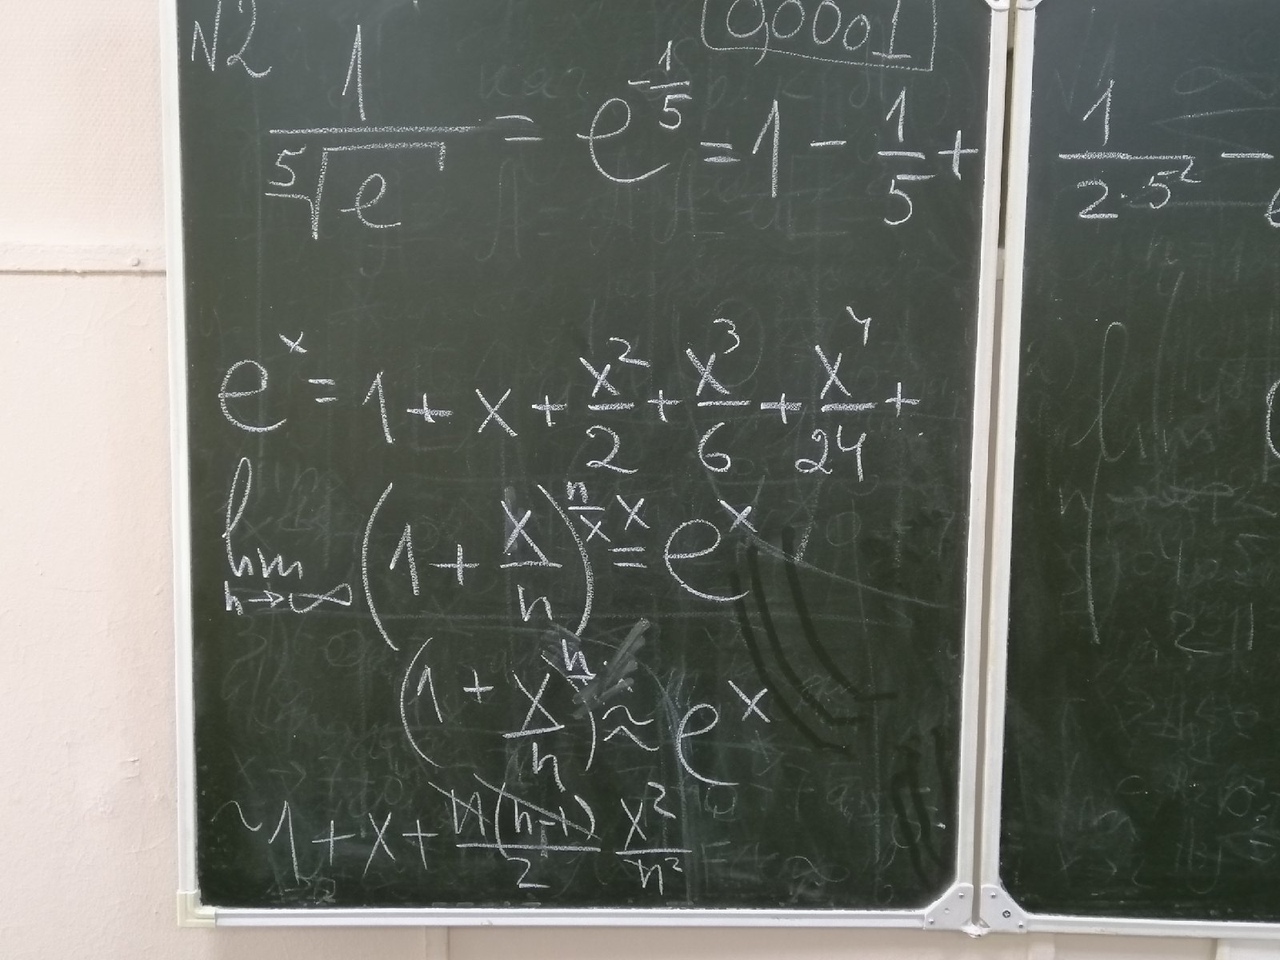 №2
0,0001
1/⁵√e = e^(-1/5) = 1 - 1/5 + 1/(2·5²) -
e^x = 1 + x + x²/2 + x³/6 + x⁴/24 +
lim n→∞ (1 + x/n)^(n/x · x) = e^x
(1 + x/n)^n ≈ e^x
~1 + x + n(n-1)/2 x²/n²